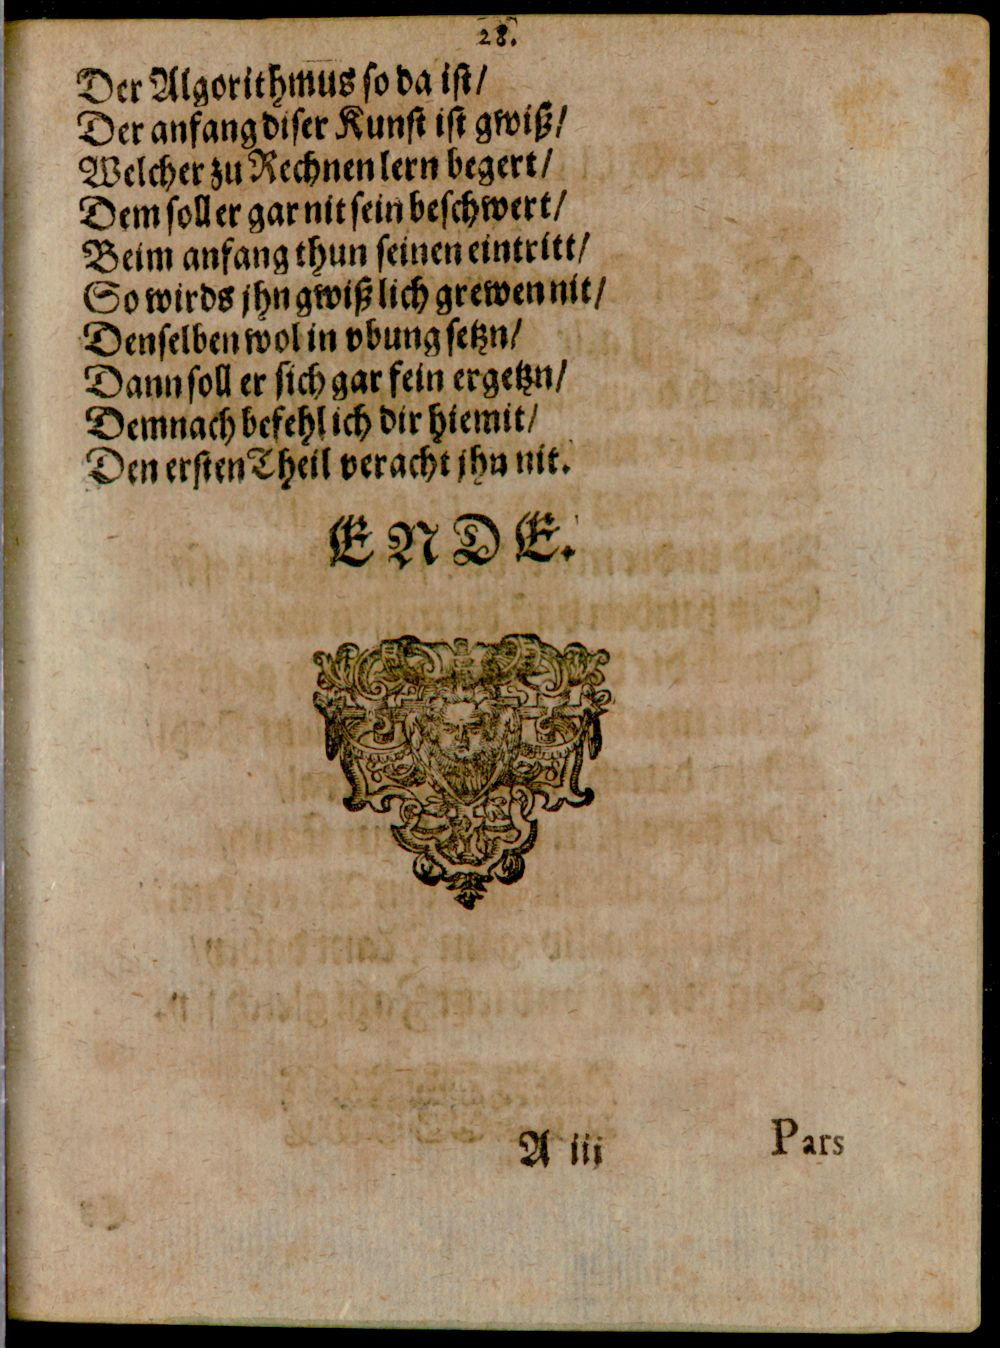 28.
Der Algorithmus so da ist/
Der anfang diser Kunst ist gwiß/
Welcher zu Rechnen lern begert/
Dem soll er gar nit sein beschwert/
Beim anfang thun seinen eintritt/
So wirds jhn gwißlich grewen nit/
Denselben wol in vbung setzn/
Dann soll er sich gar fein ergetzn/
Demnach befehl ich dir hiemit/
Den ersten Theil veracht jhn nit.
ENDE.
A iii
Pars